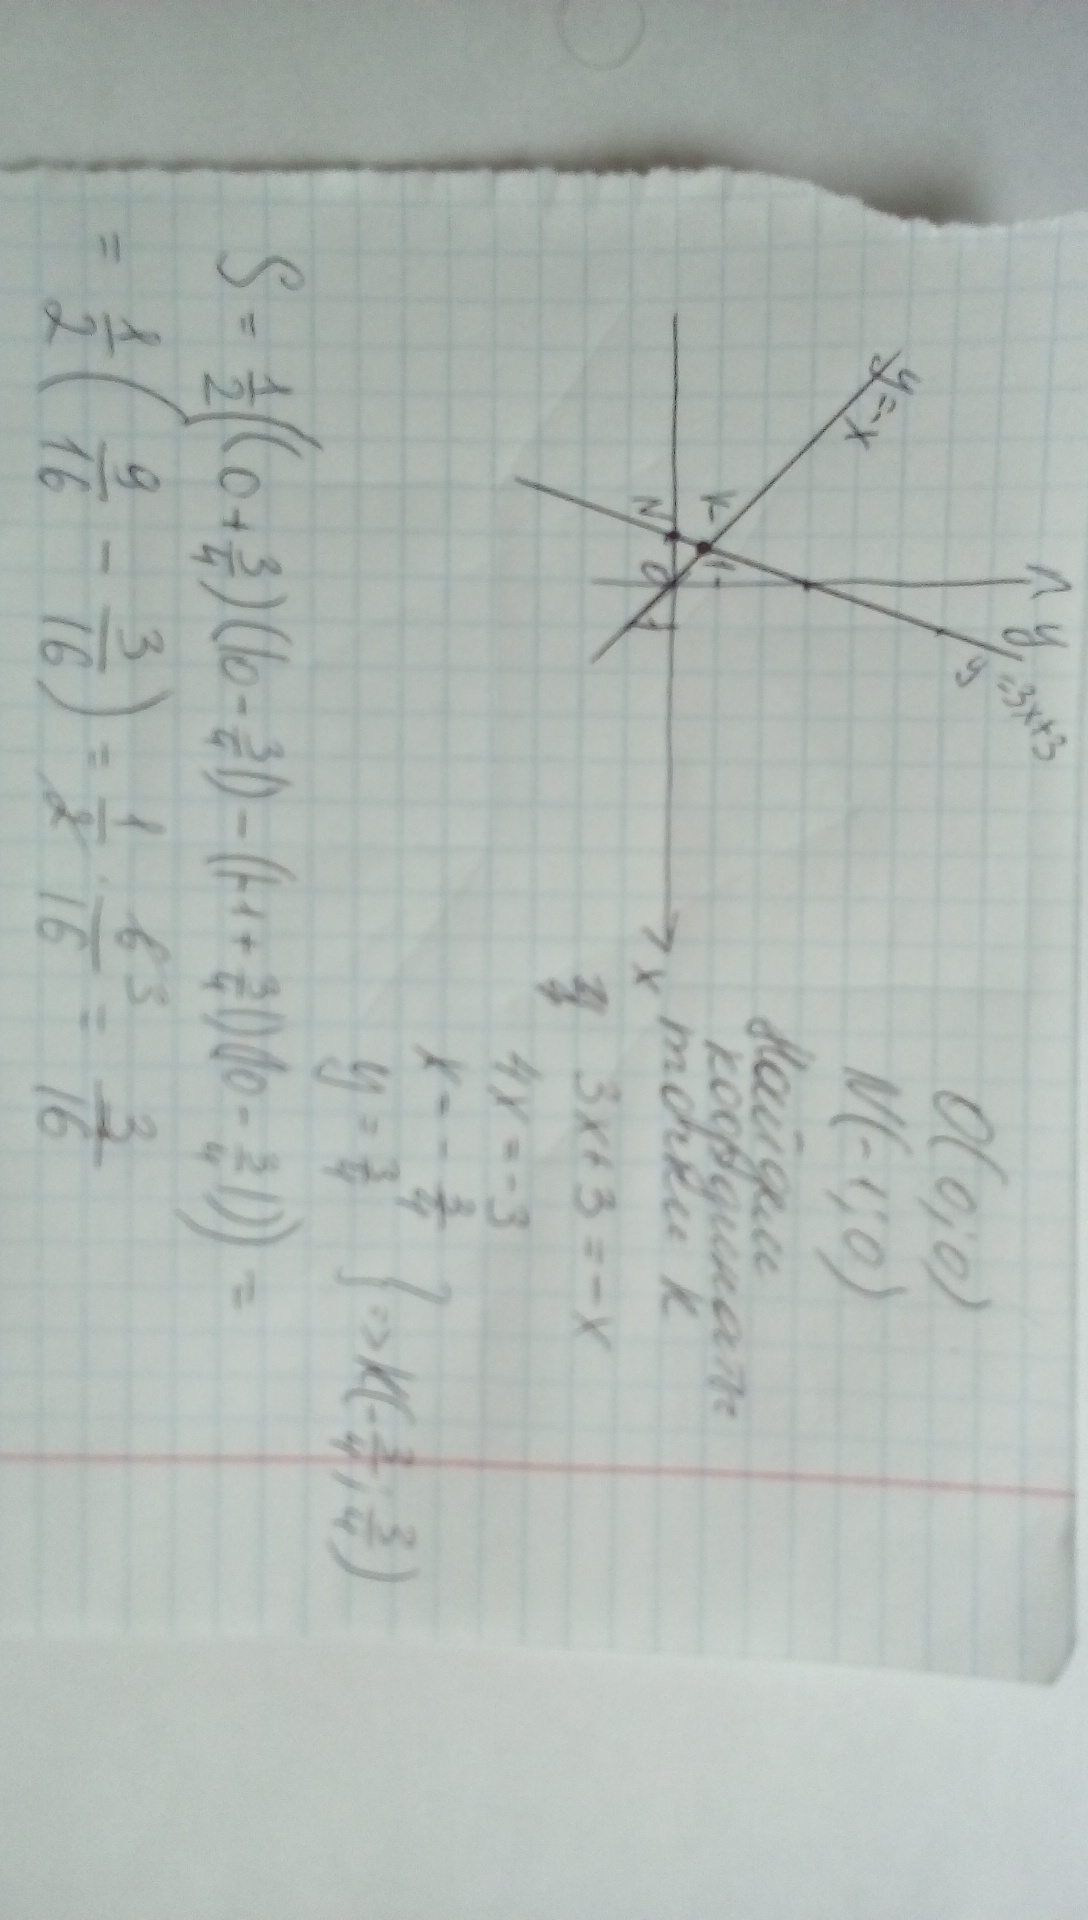 y
y=3x+3
y=-x
K
1
N
O
1
x
O(0;0)
N(-1;0)
Найдем
координаты
точки K
3x+3=-x
4x=-3
x=-3/4
y=3/4 } => K(-3/4; 3/4)
S=1/2((0+3/4)(0-3/4)-(-1+3/4)(0-3/4))=
=1/2(9/16-3/16)=1/2·6 3/16=3/16